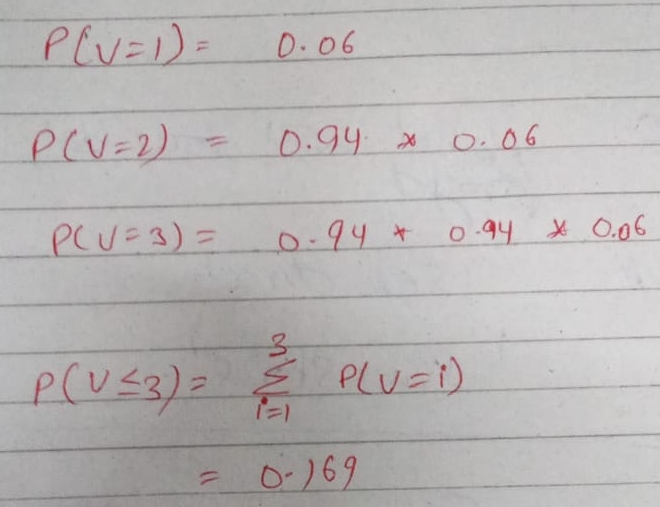 P(V=1) = 0.06
P(V=2) = 0.94 * 0.06
P(V=3) = 0.94 * 0.94 * 0.06
P(V≤3) = ∑_{i=1}^{3} P(V=i)
= 0.169